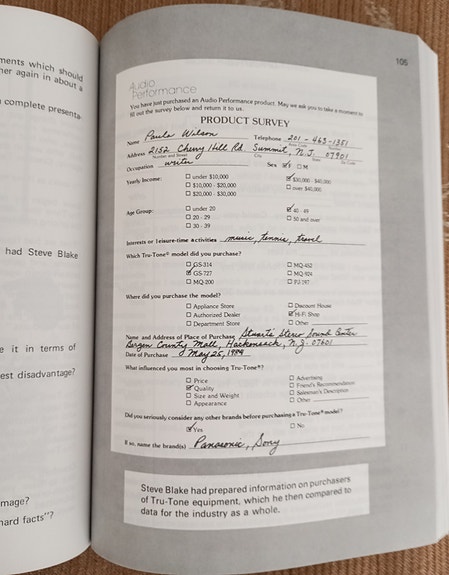 ments which should
her again in about a
complete presenta-
had Steve Blake
e it in terms of
est disadvantage?
mage?
hard facts"?
105
Audio
Performance
You have just purchased an Audio Performance product. May we ask you to take a moment to
fill out the survey below and return it to us.
PRODUCT SURVEY
Name Paula Wilson Telephone 201-463-1351
Address 2152 Cherry Hill Rd. Summit, N.J. 07901
Number and Street City State Zip Code
Occupation writer Sex ☑F ☐M
Yearly Income: ☐ under $10,000 ☑ $30,000 - $40,000
☐ $10,000 - $20,000 ☐ over $40,000
☐ $20,000 - $30,000
Age Group: ☐ under 20 ☑ 40 - 49
☐ 20 - 29 ☐ 50 and over
☐ 30 - 39
Interests or leisure-time activities music, tennis, travel
Which Tru-Tone® model did you purchase?
☐ GS-314 ☐ MQ-452
☑ GS-727 ☐ MQ-924
☐ MQ-200 ☐ PJ-197
Where did you purchase the model?
☐ Appliance Store ☐ Discount House
☐ Authorized Dealer ☑ Hi-Fi Shop
☐ Department Store ☐ Other
Name and Address of Place of Purchase Stuart's Stereo Sound Center
Bergen County Mall, Hackensack, N.J. 07601
Date of Purchase May 25, 1984
What influenced you most in choosing Tru-Tone®?
☐ Price ☐ Advertising
☑ Quality ☐ Friend's Recommendation
☐ Size and Weight ☐ Salesman's Description
☐ Appearance ☐ Other
Did you seriously consider any other brands before purchasing a Tru-Tone® model?
☑ Yes ☐ No
If so, name the brand(s) Panasonic, Sony
Steve Blake had prepared information on purchasers
of Tru-Tone equipment, which he then compared to
data for the industry as a whole.